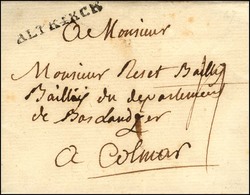 ALTKIRCK
A Monsieur
Monsieur Reset Bailly
Bailly du departement
de
A Colmar